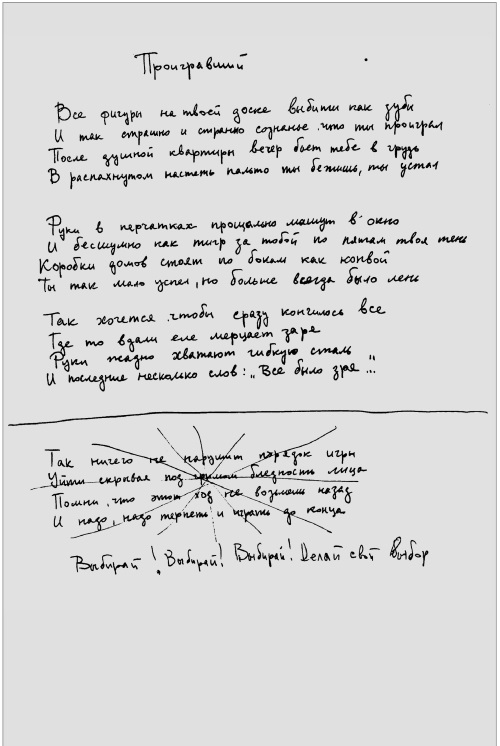 Проигравший
Все фигуры на твоей доске выбиты как зубы
И так страшно и странно сознанье что ты проиграл
После душной квартиры вечер бьет тебе в грудь
В распахнутом настеж пальто ты бежишь, ты устал
Руки в перчатках прощально машут в окно
И бесшумно как тигр за тобой по пятам твоя тень
Коробки домов стоят по бокам как конвой
Ты так мало успел, но больше всегда было лень
Так хочется чтобы сразу кончилось все
Где то вдали еле мерцает заря
Руки жадно хватают гибкую сталь
И последние несколько слов: „Все было зря ...”
Так ничего не нарушит порядок игры
Уйти скрывая под гримом бледность лица
Помни, что этот ход не возьмешь назад
И надо, надо терпеть и играть до конца
Выбирай! Выбирай! Выбирай! Делай свой выбор